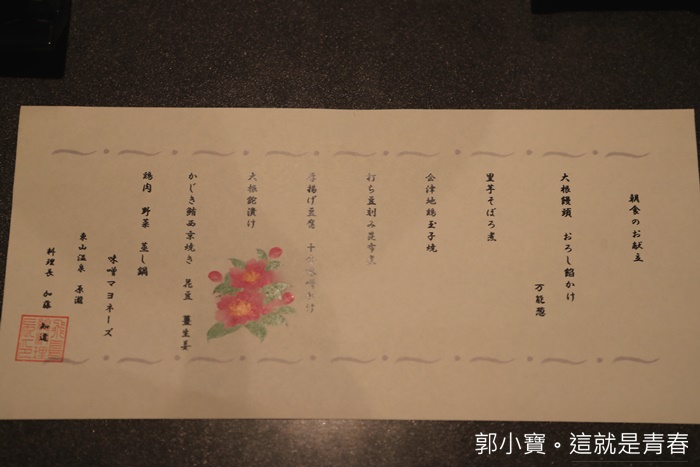 朝食のお献立
大根饅頭 おろし餡かけ
万能葱
里芋そぼろ煮
会津地鶏玉子焼
打ち豆刻み昆布煮
厚揚げ豆腐
大根詑漬け
かじき鮪西京焼き 昆豆 薑生姜
鶏肉 野菜 蒸し鍋
味噌マヨネーズ
東山温泉 原瀧
料理長 加藤
郭小寶。這就是青春